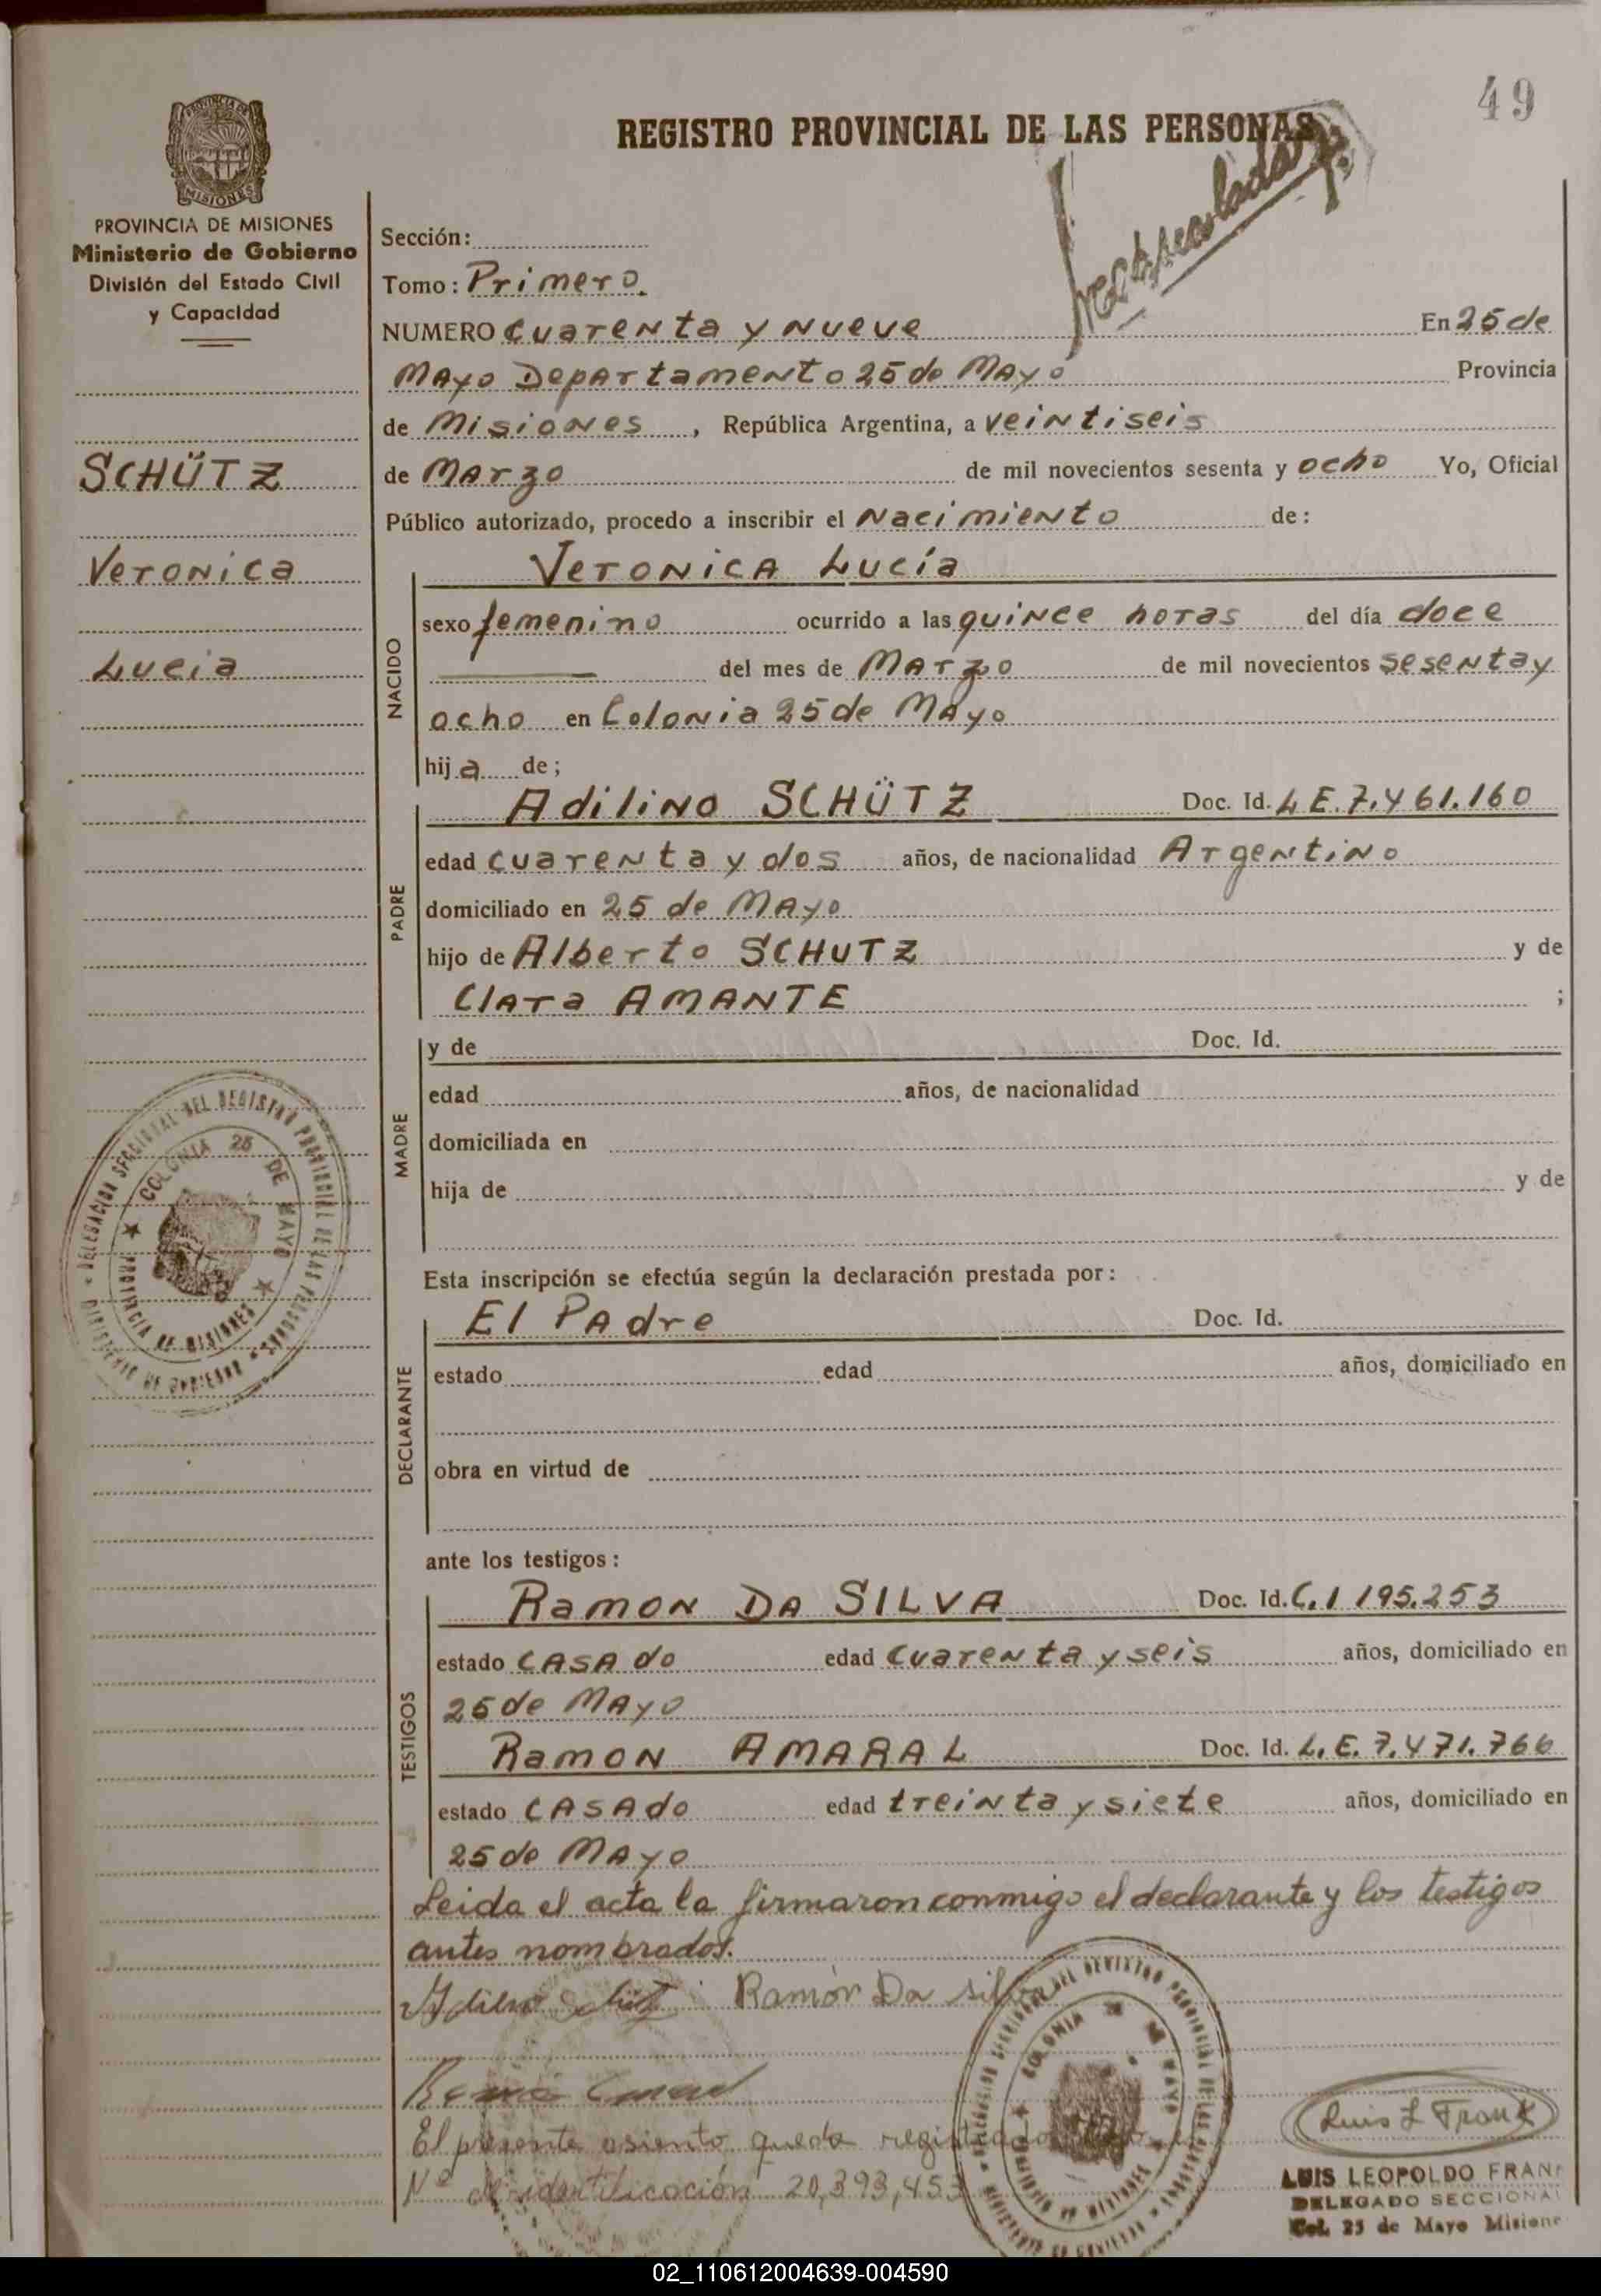 49
REGISTRO PROVINCIAL DE LAS PERSONAS
PROVINCIA DE MISIONES
Ministerio de Gobierno
División del Estado Civil
y Capacidad
SCHÜTZ
Veronica
Lucia
Sección:
Tomo: Primero.
NUMERO cuarenta y nueve En 25 de
Mayo Departamento 25 de Mayo Provincia
de Misiones, República Argentina, a veintiseis
de Marzo de mil novecientos sesenta y ocho Yo, Oficial
Público autorizado, procedo a inscribir el Nacimiento de:
Veronica Lucía
NACIDO
sexo femenino ocurrido a las quince horas del día doce
del mes de Marzo de mil novecientos sesenta y
ocho en Colonia 25 de Mayo
hija de;
Adilino SCHÜTZ Doc. Id. L E. 7.461.160
PADRE
edad cuarenta y dos años, de nacionalidad Argentino
domiciliado en 25 de Mayo
hijo de Alberto SCHUTZ y de
Clara AMANTE ;
y de Doc. Id.
MADRE
edad años, de nacionalidad
domiciliada en
hija de y de
Esta inscripción se efectúa según la declaración prestada por:
El Padre Doc. Id.
DECLARANTE
estado edad años, domiciliado en
obra en virtud de
ante los testigos:
Ramon DA SILVA Doc. Id. C. I 195.253
TESTIGOS
estado casado edad cuarenta y seis años, domiciliado en
25 de Mayo
Ramon AMARAL Doc. Id. L. E. 7.471.766
estado casado edad treinta y siete años, domiciliado en
25 de Mayo
Leida el acta la firmaron conmigo el declarante y los testigos
antes nombrados.
Ramón Da silva
El presente asiento queda registrado
Nº de identificación 20,393,453
COLONIA 25 DE MAYO
PROVINCIA DE MISIONES
Luis L Frank
LUIS LEOPOLDO FRAN
DELEGADO SECCIONAL
Col. 25 de Mayo Misione
02_110612004639-004590